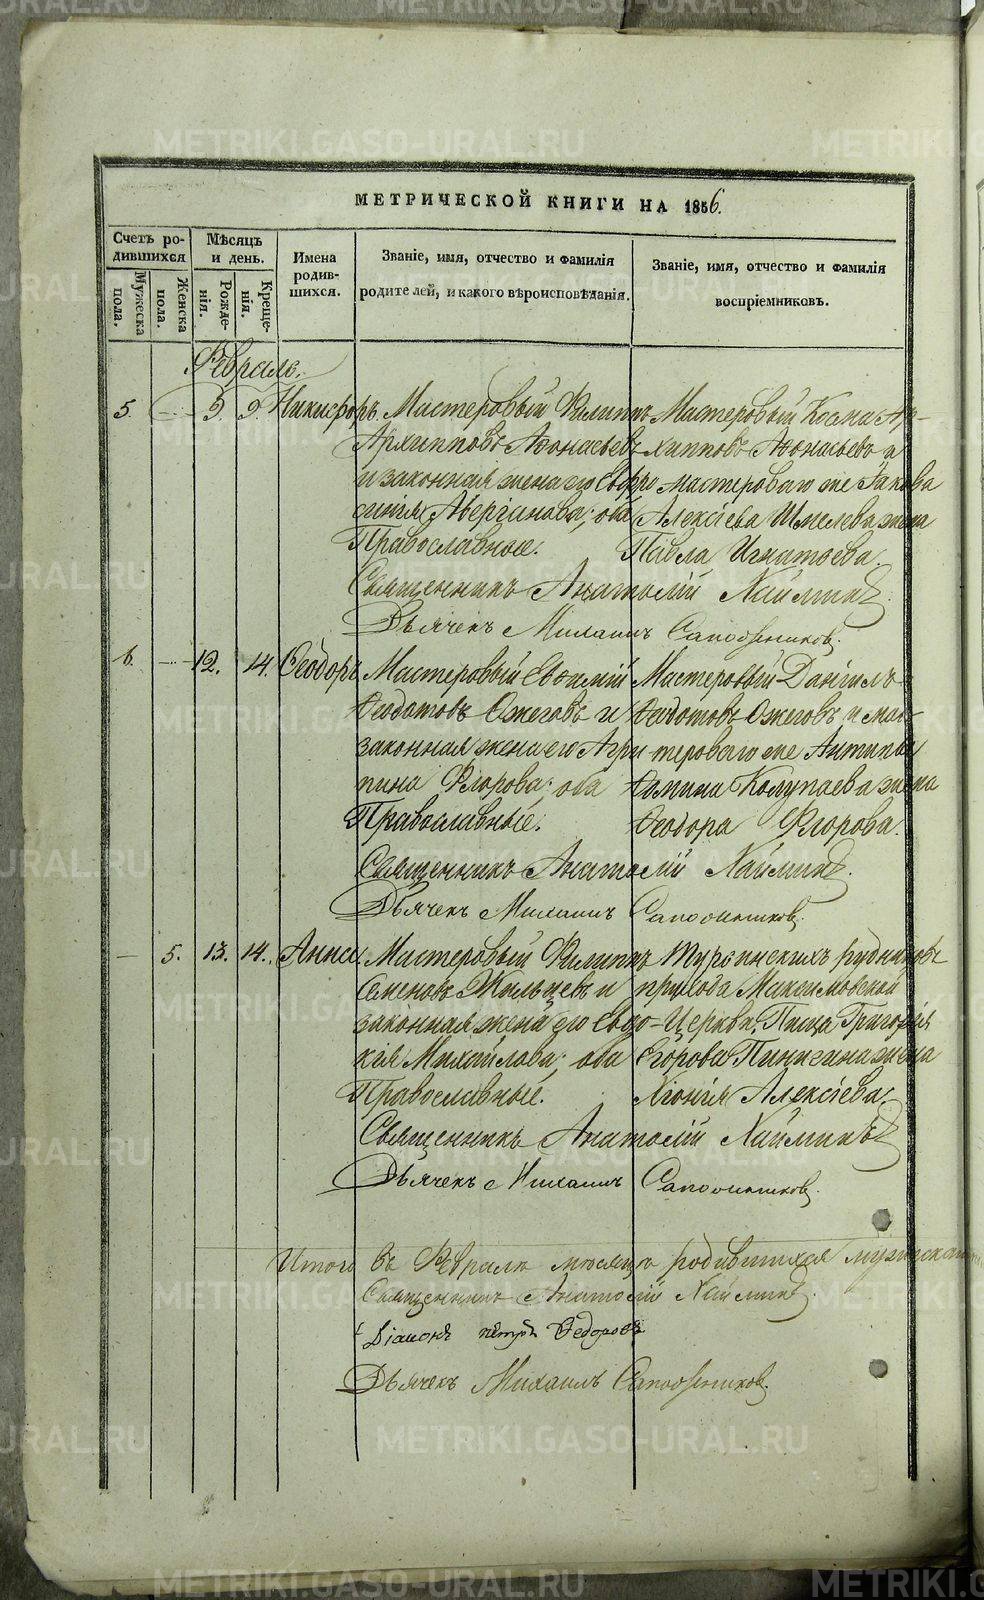 МЕТРИЧЕСКОЙ КНИГИ НА 1856.
Счетъ ро-
дившихся
Мѣсяцъ
и день.
Имена
родив-
шихся.
Званіе, имя, отчество и фамилія
родителей, и какого вѣроисповѣданія.
Званіе, имя, отчество и фамилія
воспріемниковъ.
Мужеска
пола.
Женска
пола.
Рожде-
нія.
Креще-
нія.
Февраль.
5. 5 9. Никифоръ. Мастеровый Филиппъ
Архипповъ Аѳонасьевъ
и законная жена его Евфро
синія Аверьянова; оба
Православные.
Мастеровый Козма Ар-
хипповъ Аѳонасьевъ и
мастероваго же Іакова
Алексіева Шмелева жена
Павла Игнатьева.
Священникъ Анатолій
Дьячекъ Михаилъ Сапожников.
6. 12. 14. Ѳеодоръ Мастеровый Евѳимій
Ѳеодотовъ Ожеговъ и
законная жена его Агри
пина Флорова; оба
Православные.
Мастеровый Даніилъ
Ѳеодотовъ Ожеговъ и мас-
тероваго же Антипы
Ѳомина Колупаева жена
Ѳеодора Флорова.
Священникъ Анатолій
Дьячекъ Михаилъ Сапожников
5. 13. 14. Анна. Мастеровый Филиппъ
Семеновъ Жильцевъ и
законная жена его Евдо-
кія Михайлова; оба
Православные.
Турьинскихъ рудниковъ
прихода Максимовской
Церкви, Григорія
Егорова Пинигина жена
Хіонія Алексіева.
Священникъ Анатолій
Дьячекъ Михаилъ Сапожников.
Итого въ Февралѣ мѣсяцѣ родившихся мужеска
Священникъ Анатолій
Діаконъ Петръ Ѳедоровъ
Дьячекъ Михаилъ Сапожников.
METRIKI.GASO-URAL.RU